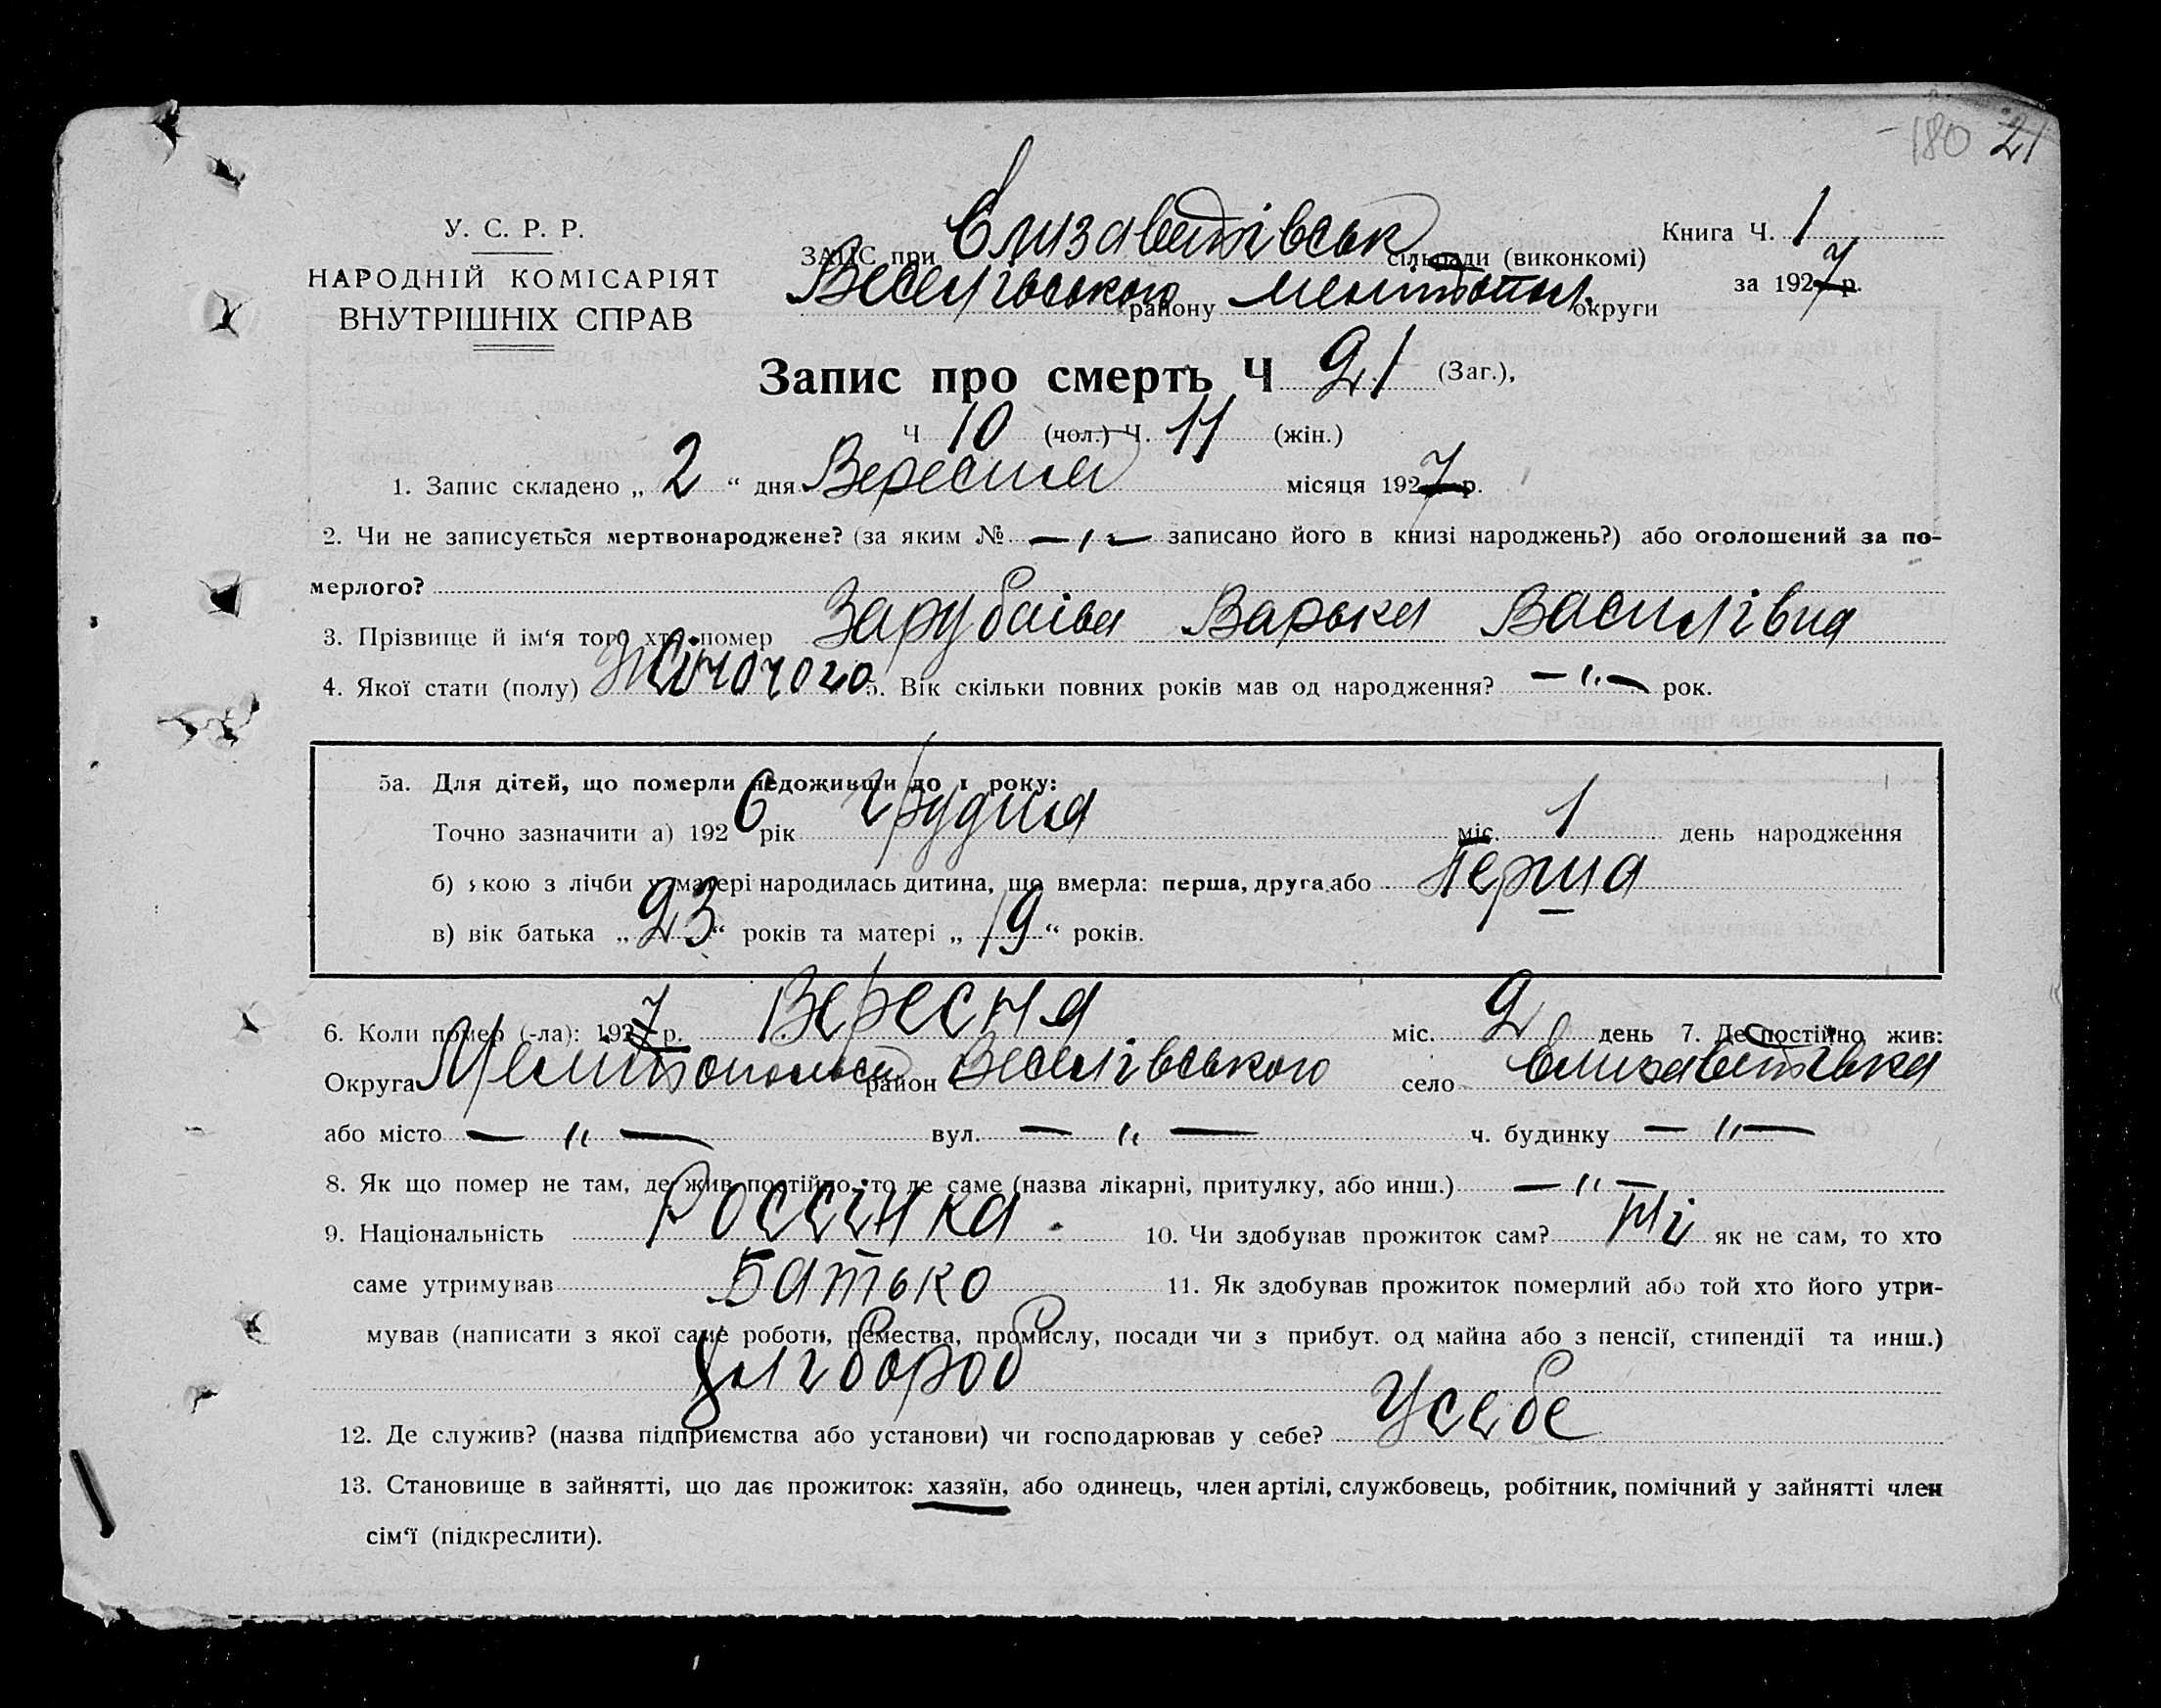 180 21
У. С. Р. Р.
НАРОДНІЙ КОМІСАРІЯТ
ВНУТРІШНІХ СПРАВ
ЗАПС при Єлизаветівськ сільради (виконкомі)
Веселівського району Мелітопол. округи
Книга Ч. 1
за 1927 р.
Запис про смерть Ч 21 (Заг.),
Ч 10 (чол.) Ч. 11 (жін.)
1. Запис складено „ 2 “ дня Вересня місяця 1927 р.
2. Чи не записується мертвонароджене? (за яким № — „ — записано його в книзі народжень?) або оголошений за по-
мерлого?
3. Прізвище й ім‘я того хто помер Зарубаіва Варька Василівна
4. Якої стати (полу) Жіночого 5. Вік скільки повних років мав од народження? — „ — рок.
5а. Для дітей, що померли недоживши до 1 року:
Точно зазначити а) 1926 рік грудня міс. 1 день народження
б) якою з лічби у матері народилась дитина, що вмерла: перша, друга або Перша
в) вік батька „ 23 “ років та матері „ 19 “ років.
6. Коли помер (-ла): 1927 р. Вересня міс. 2 день 7. Де постійно жив:
Округа район Веселівського село Єлизаветівка
або місто — „ — вул. — „ — ч. будинку — „ —
8. Як що помер не там, де жив постійно, то де саме (назва лікарні, притулку, або инш.) — „ —
9. Національність Россінка 10. Чи здобував прожиток сам? Ні як не сам, то хто
саме утримував Батько 11. Як здобував прожиток померлий або той хто його утри-
мував (написати з якої саме роботи, ремества, промислу, посади чи з прибут. од майна або з пенсії, стипендії та инш.)
Хлібороб
12. Де служив? (назва підприємства або установи) чи господарював у себе? Усебе
13. Становище в зайнятті, що дає прожиток: хазяїн, або одинець, член артілі, службовець, робітник, помічний у зайнятті член
сім‘ї (підкреслити).